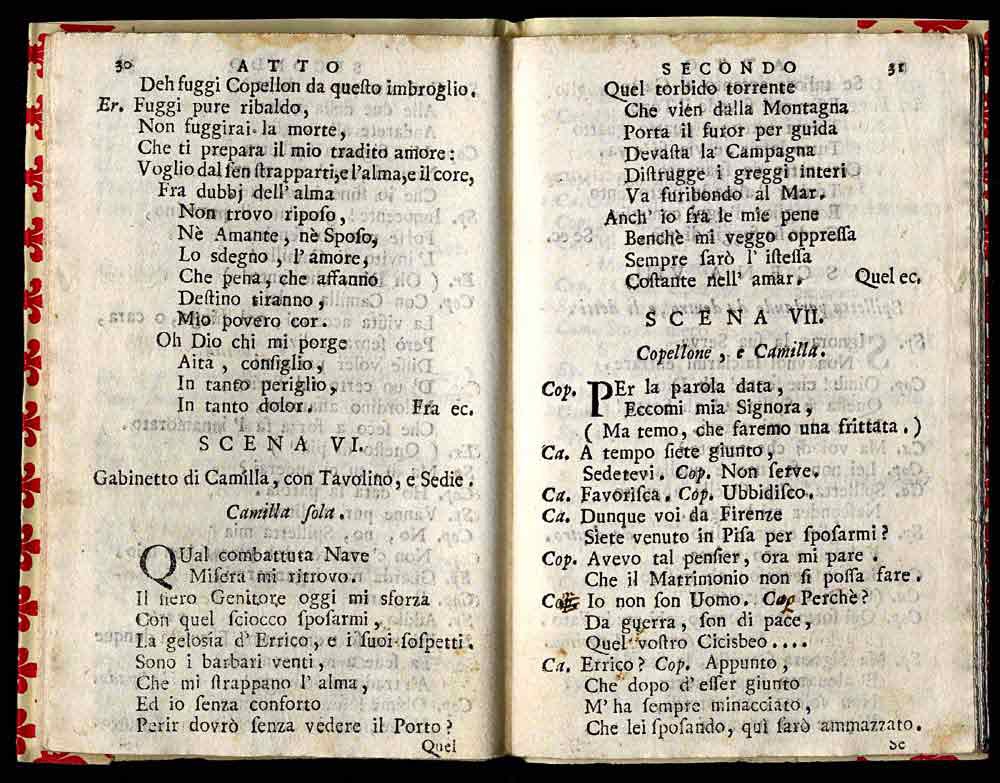 30 ATTO
Deh fuggi Copellon da queſto imbroglio.
Er. Fuggi pure ribaldo,
Non fuggirai la morte,
Che ti prepara il mio tradito amore:
Voglio dal ſen ſtrapparti,e l'alma,e il core,
Fra dubbj dell' alma
Non trovo ripoſo,
Nè Amante, nè Spoſo,
Lo sdegno, l'amore,
Che pena, che affanno
Deſtino tiranno,
Mio povero cor.
Oh Dio chi mi porge
Aita, conſiglio,
In tanto periglio,
In tanto dolor. Fra ec.
SCENA VI.
Gabinetto di Camilla, con Tavolino, e Sedie.
Camilla ſola.
QUal combattuta Nave
Miſera mi ritrovo.
Il fiero Genitore oggi mi sforza
Con quel ſciocco ſpoſarmi,
La geloſia d' Errico, e i ſuoi ſoſpetti.
Sono i barbari venti,
Che mi ſtrappano l' alma,
Ed io ſenza conforto
Perir dovrò ſenza vedere il Porto?
Quel
SECONDO 31
Quel torbido torrente
Che vien dalla Montagna
Porta il furor per guida
Devaſta la Campagna
Diſtrugge i greggi interi
Va furibondo al Mar.
Anch' io fra le mie pene
Benchè mi veggo oppreſſa
Sempre ſarò l' iſteſſa
Coſtante nell' amar. Quel ec.
SCENA VII.
Copellone, e Camilla.
Cop. PEr la parola data,
Eccomi mia Signora,
( Ma temo, che faremo una frittata. )
Ca. A tempo ſiete giunto,
Sedetevi. Cop. Non ſerve.
Ca. Favoriſca. Cop. Ubbidiſco.
Ca. Dunque voi da Firenze
Siete venuto in Piſa per ſpoſarmi?
Cop. Avevo tal penſier, ora mi pare.
Che il Matrimonio non ſi poſſa fare.
Io non ſon Uomo. Cap Perchè?
Da guerra, ſon di pace,
Quel voſtro Cicisbeo....
Ca. Errico? Cop. Appunto,
Che dopo d' eſſer giunto
M' ha ſempre minacciato,
Che lei ſpoſando, quì ſarò ammazzato.
Se